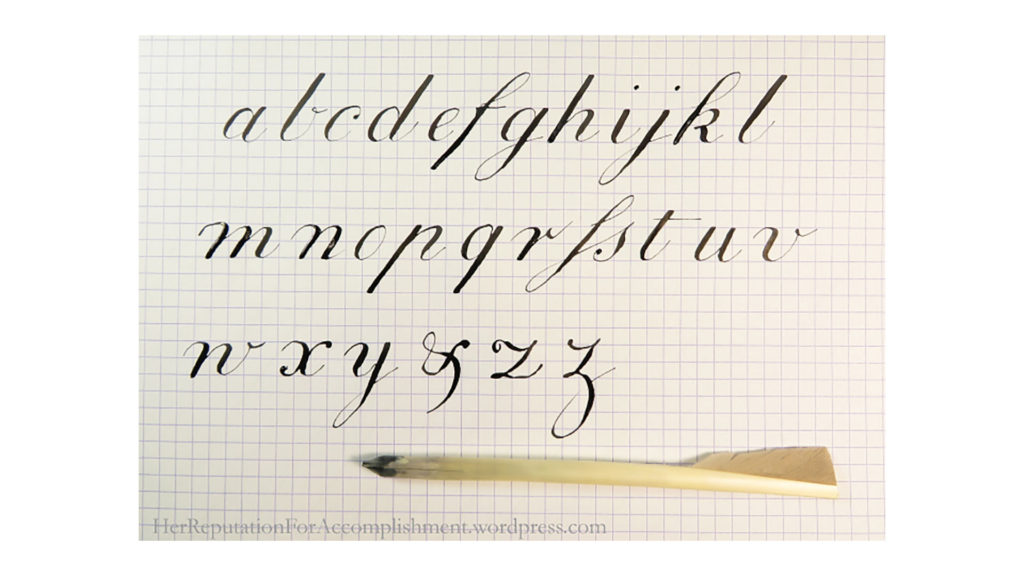 a b c d e f g h i j k l
m n o p q r ſ s t u v
w x y & z z
HerReputationForAccomplishment.wordpress.com